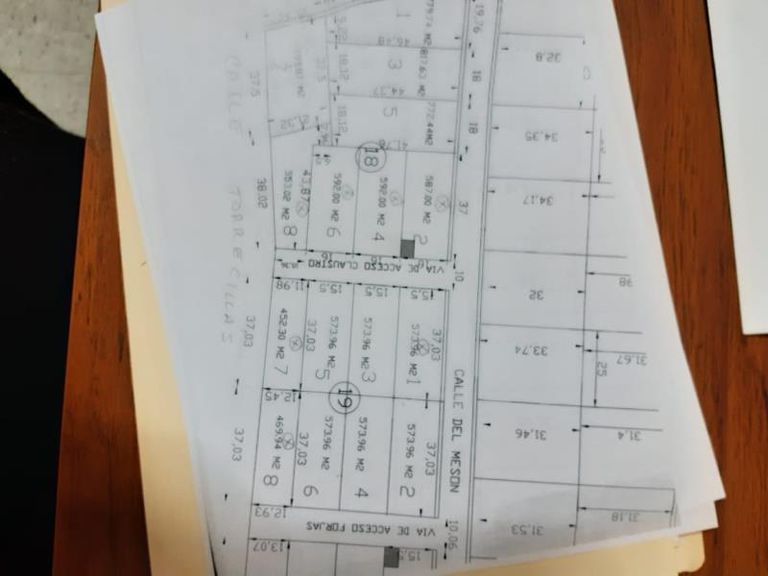 19.76
32.8
779.74 M2
1
5.22
46.48
817.63 M2
18
3
18.12
37.5
32.5
CALLE
44.37
18
772.44 M2
5
18.12
34.35
41.78
18
37
587.00 M2
2
592.00 M2
4
592.00 M2
6
47.87
553.02 M2
8
38.02
TORRECILLAS
34.17
16
16
VIA DE ACCESO CLAUSTRO
10
98
32
11.98
15.5
15.5
15.5
37.03
452.30 M2
7
37.03
573.96 M2
5
573.96 M2
3
573.96 M2
1
37.03
33.74
31.67
25
19
CALLE DEL MESON
12.45
31.46
31.4
37.03
469.94 M2
8
37.03
573.96 M2
6
573.96 M2
4
573.96 M2
2
37.03
12.93
VIA DE ACCESO FORJAS
10.06
31.53
31.18
13.07
15.5